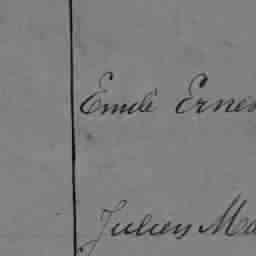 Emile Ernes
Julien Ma